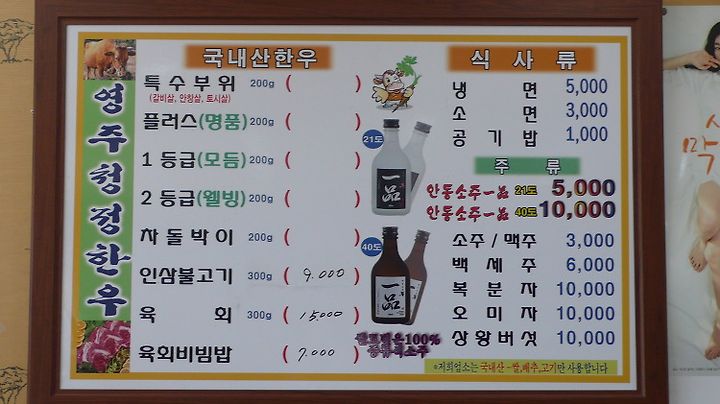 영주청정한우
국내산한우
특수부위 200g ( )
(갈비살, 안창살, 토시살)
플러스(명품) 200g ( )
1 등급(모듬) 200g ( )
2 등급(웰빙) 200g ( )
차돌박이 200g ( )
인삼불고기 300g ( 9.000 )
육 회 300g ( 15.000 )
육회비빔밥 ( 7.000 )
21도
一品
40도
一品
100%
증류식소주
식 사 류
냉 면 5,000
소 면 3,000
공 기 밥 1,000
주 류
안동소주一品 21도 5,000
안동소주一品 40도 10,000
소주 / 맥주 3,000
백 세 주 6,000
복 분 자 10,000
오 미 자 10,000
상황버섯 10,000
*저희업소는 국내산 - 쌀,배추,고기만 사용합니다
막